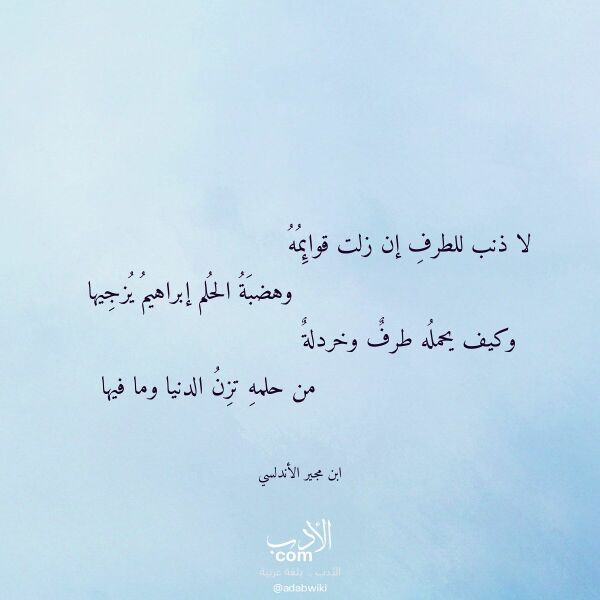 لا ذنب للطرفِ إن زلت قوائِمُهُ
وهضبَةُ الحُلم إبراهيمُ يُزجِيها
وكيف يحملُه طرفٌ وخردلةٌ
من حلمهِ تزِنُ الدنيا وما فيها
ابن مجير الأندلسي
الأدب
com
الأدب .. بلغة عربية
@adabwiki